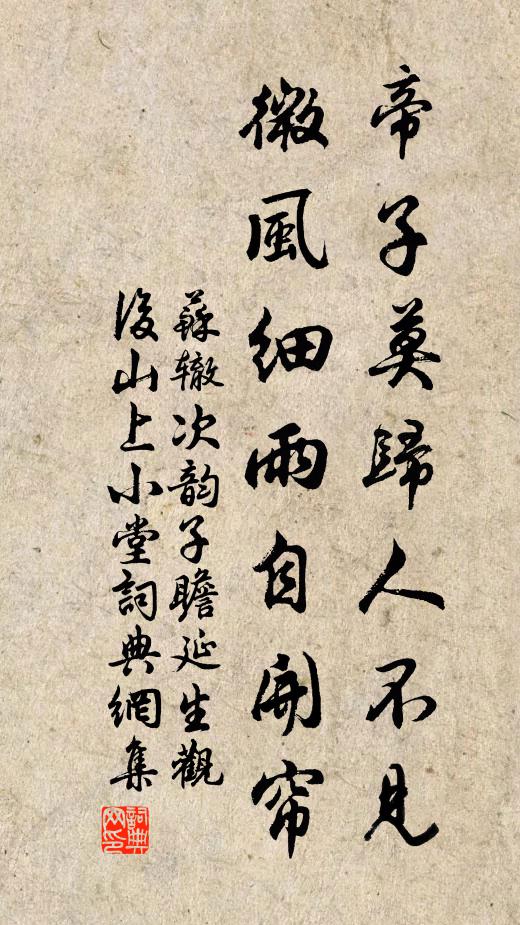 帝子莫歸人不見
微風細雨自開帘
蘇辙次韵子瞻延生觀
後山上小堂詞典網集
詞典
网印